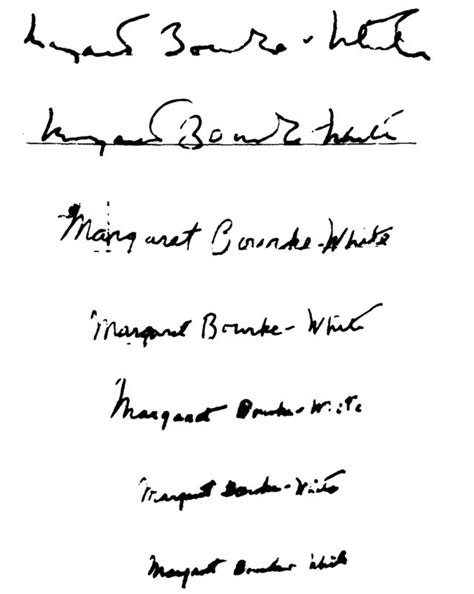 Margaret Bourke-White
Margaret Bourke-White
Margaret Bourke-White
Margaret Bourke-White
Margaret Bourke-White
Margaret Bourke-White
Margaret Bourke White